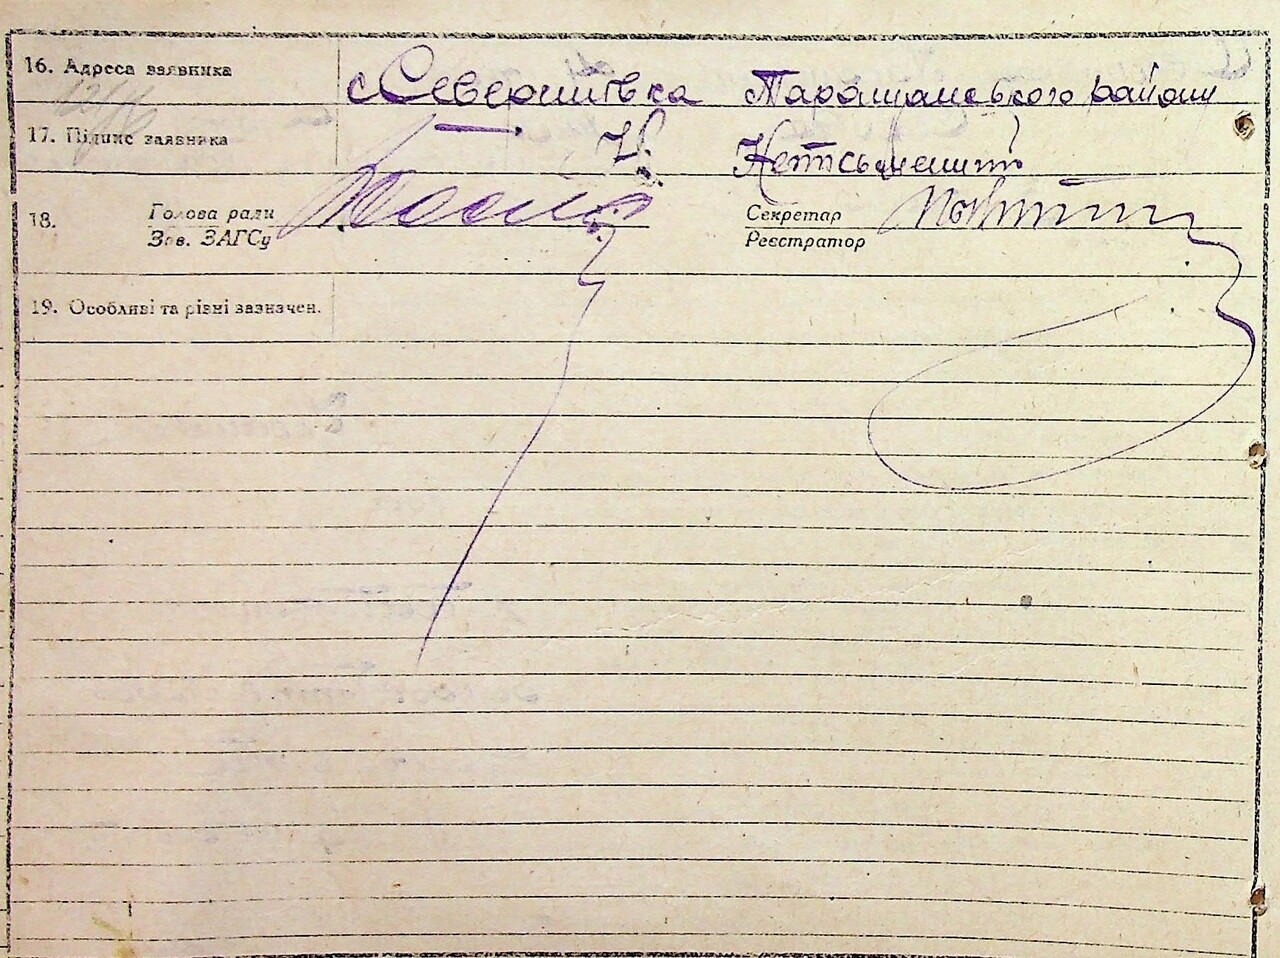 16. Адреса заявника с Северинівка Таращанського району
17. Підпис заявника
18. Голова ради Секретар
Зав. ЗАГСу Реєстратор
19. Особливі та різні зазначен.